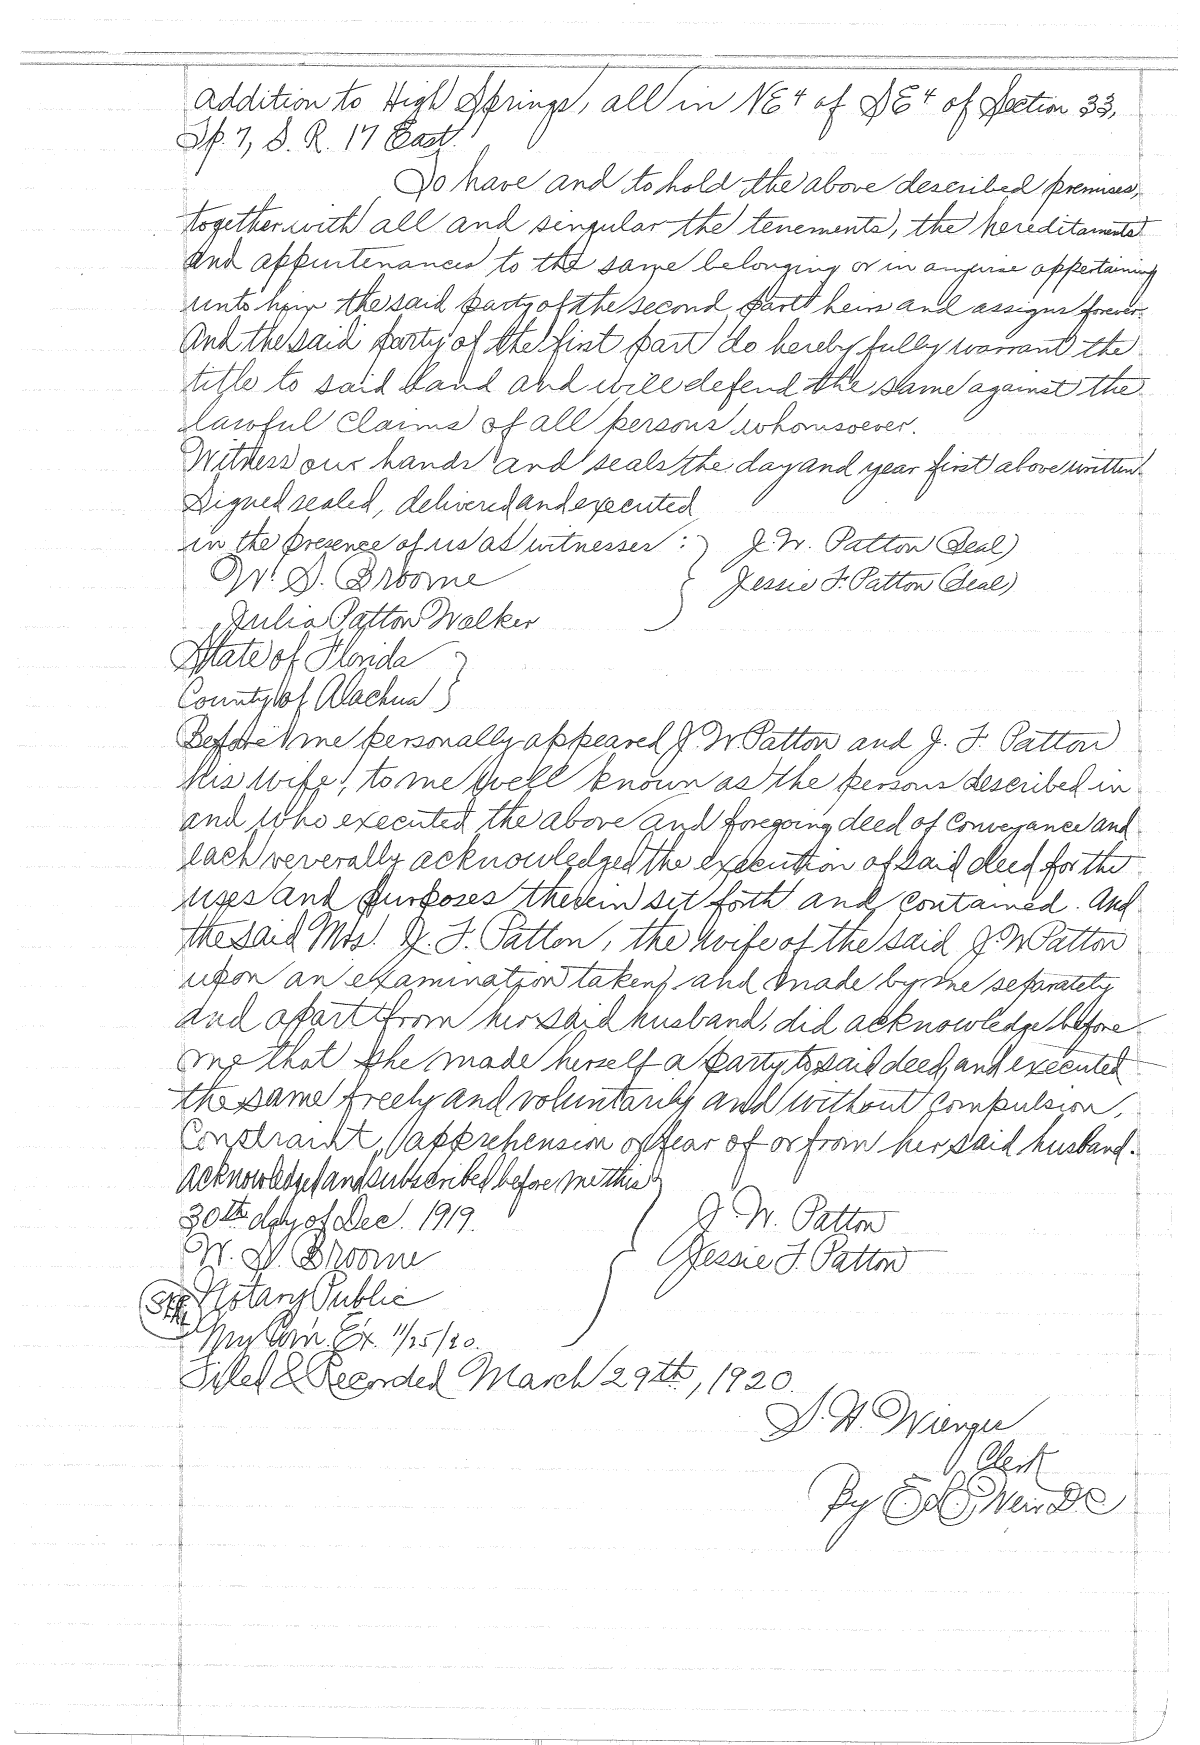 Addition to High Springs, all in NE4 of SE4 of Section 33,
Tp. 7, S. R. 17 East.
To have and to hold the above described premises,
together with all and singular the tenements, the hereditaments
and appurtenances to the same belonging or in anywise appertaining
unto him the said party of the second part heirs and assigns forever.
And the said party of the first part do hereby fully warrant the
title to said land and will defend the same against the
lawful claims of all persons whomsoever.
Witness our hands and seals the day and year first above written.
Signed sealed, delivered and executed
in the presence of us as witnesses: J. W. Patton (Seal)
W. S. Broome Jessie F. Patton (Seal)
Julia Patton Walker
State of Florida
County of Alachua
Before me personally appeared J. W. Patton and J. F. Patton
his wife, to me well known as the persons described in
and who executed the above and foregoing deed of Conveyance and
each reverally acknowledged the execution of said deed for the
uses and purposes therein set forth and contained. And
the said Mrs. J. F. Patton, the wife of the said J. W. Patton
upon an examination taken, and made by me separately
and apart from her said husband, did acknowledge before
me that she made herself a party to said deed, and executed
the same freely and voluntarily and without compulsion,
Constraint, apprehension or fear of or from her said husband.
Acknowledged and subscribed before me this
30th day of Dec. 1919. J. W. Patton
W. S. Broome Jessie F. Patton
Notary Public
My Com. Ex. 11/25/20.
Filed & Recorded March 29th, 1920.
S. H. Wienges
Clerk
By Weir DC